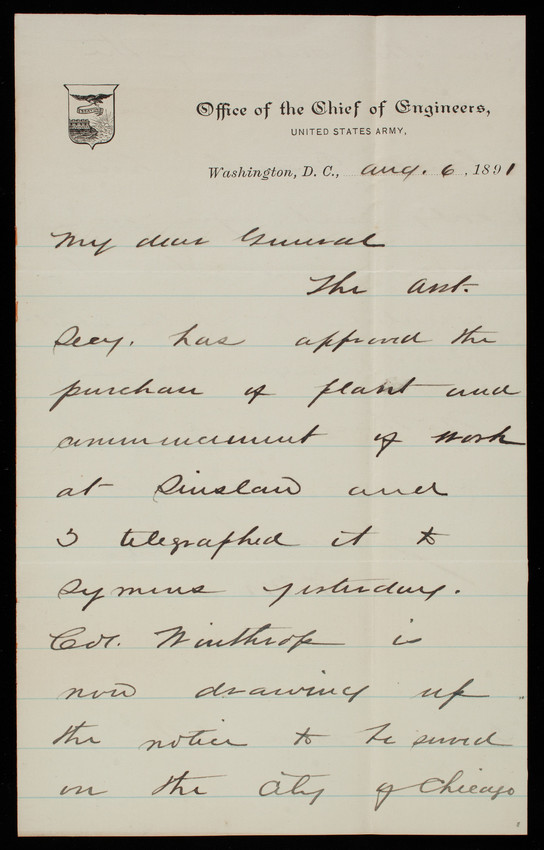 Office of the Chief of Engineers,
UNITED STATES ARMY,
Washington, D. C., Aug. 6, 1891
My dear General
The Asst.
Secy. has approved the
purchase of plant and
commencement of work
at Siuslaw and
I telegraphed it to
Symons yesterday.
Col. Winthrop is
now drawing up
the notice to be served
on the City of Chicago